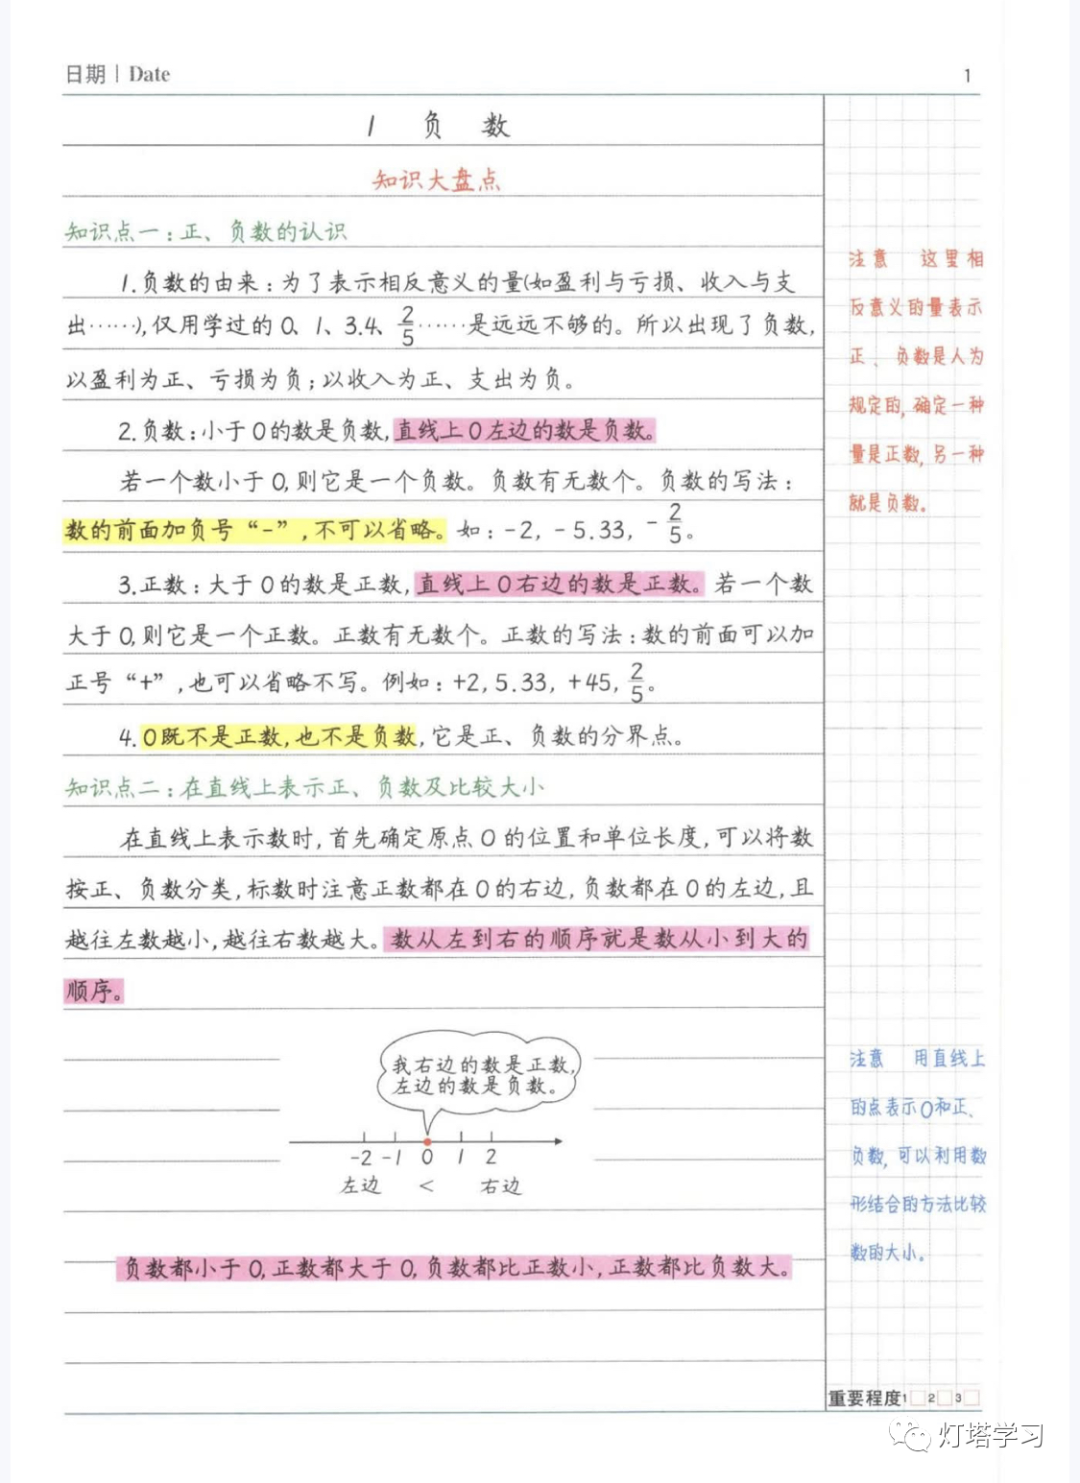 日期 | Date
1
1 负 数
知识大盘点
知识点一：正、负数的认识
1.负数的由来：为了表示相反意义的量(如盈利与亏损、收入与支
出……),仅用学过的0、1、3.4、2/5……是远远不够的。所以出现了负数,
以盈利为正、亏损为负；以收入为正、支出为负。
2.负数：小于0的数是负数,直线上0左边的数是负数。
若一个数小于0,则它是一个负数。负数有无数个。负数的写法：
数的前面加负号“-”,不可以省略。如：-2, -5.33, -2/5。
3.正数：大于0的数是正数,直线上0右边的数是正数。若一个数
大于0,则它是一个正数。正数有无数个。正数的写法：数的前面可以加
正号“+”,也可以省略不写。例如：+2, 5.33, +45, 2/5。
4.0既不是正数,也不是负数,它是正、负数的分界点。
知识点二：在直线上表示正、负数及比较大小
在直线上表示数时,首先确定原点0的位置和单位长度,可以将数
按正、负数分类,标数时注意正数都在0的右边,负数都在0的左边,且
越往左数越小,越往右数越大。数从左到右的顺序就是数从小到大的
顺序。
我右边的数是正数,
左边的数是负数。
-2 -1 0 1 2
左边 < 右边
负数都小于0,正数都大于0,负数都比正数小,正数都比负数大。
注意 这里相
反意义的量表示
正、负数是人为
规定的,确定一种
量是正数,另一种
就是负数。
注意 用直线上
的点表示0和正、
负数,可以利用数
形结合的方法比较
数的大小。
重要程度 1 2 3
灯塔学习